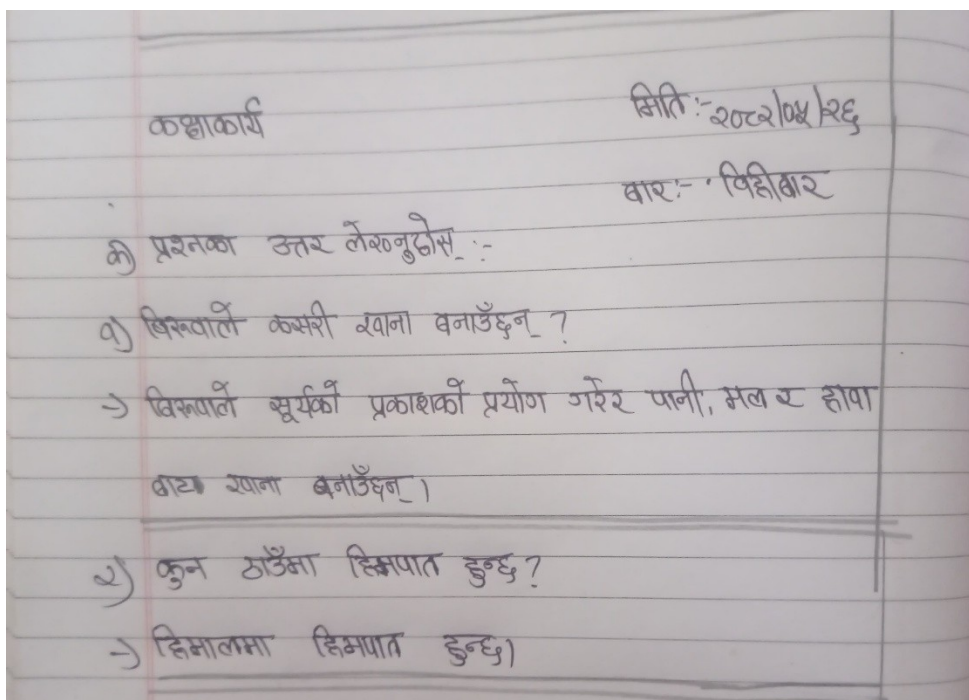 कक्षाकार्य
मितिः- २०८२/०५/२६
बारः- बिहीबार
क) प्रश्नका उत्तर लेख्नुहोस् :-
१) बिरुवाले कसरी खाना बनाउँछन् ?
-> बिरुवाले सूर्यको प्रकाशको प्रयोग गरेर पानी, मल र हावा
बाट खाना बनाउँछन् ।
२) कुन ठाउँमा हिमपात हुन्छ ?
-> हिमालमा हिमपात हुन्छ।